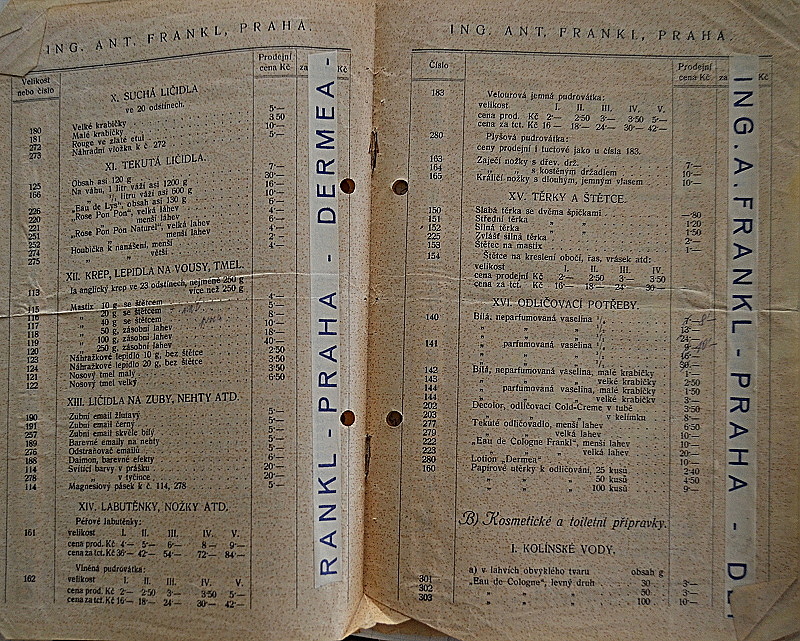 ING. ANT. FRANKL, PRAHA.
Velikost nebo číslo
Prodejní cena Kč
za
Kč
X. SUCHÁ LÍČIDLA
ve 20 odstínech.
180 Velké krabičky 5·—
181 Malé krabičky 3·50
272 Rouge ve zlaté etui 10·—
273 Náhradní vložka k č. 272 5·—
XI. TEKUTÁ LÍČIDLA.
125 Obsah asi 120 g 7·—
Na váhu, 1 litr váží asi 1200 g 30·—
166 " 1/2 litru váží asi 600 g 16·—
"Eau de Lys", obsah asi 130 g 10·—
226 "Rose Pon Pon", velká láhev
220 " " menší láhev
221 "Rose Pon Pon Naturel", velká láhev
251 " " menší láhev
252
274 Houbička k nanášení, menší
275 " " větší
XII. KREP, LEPIDLA NA VOUSY, TMEL.
113 Ia anglický krep ve 23 odstínech, nejméně 250 g
více než 250 g
115 Mastix 10 g se štětcem 4·—
116 " 20 g se štětcem
117 " 40 g se štětcem 8·—
118 " 50 g, zásobní láhev 10·—
119 " 100 g, zásobní láhev 18·—
120 " 250 g, zásobní láhev 40·—
123 Náhražkové lepidlo 10 g, bez štětce 2·50
124 Náhražkové lepidlo 20 g, bez štětce 3·50
121 Nosový tmel malý 3·50
122 Nosový tmel velký 6·50
XIII. LÍČIDLA NA ZUBY, NEHTY ATD.
190 Zubní email žlutavý 5·—
191 Zubní email černý 5·—
257 Zubní email skvěle bílý 5·—
189 Barevné emaily na nehty 5·—
276 Odstraňovač emailů
188 Daimon, barevné efekty
114 Svítící barvy v prášku 20·—
278 " " v tyčince 20·—
114 Magnesiový pásek k č. 114, 278 5·—
XIV. LABUTĚNKY, NOŽKY ATD.
Péřové labutěnky:
161 velikost I. II. III. IV. V.
cena prod. Kč 4·— 5·— 6·— 8·— 9·—
cena za tct. Kč 36·— 42·— 54·— 72·— 84·—
Vlněná pudrovátka:
162 velikost I. II. III. IV. V.
cena prod. Kč 2·— 2·50 3·— 3·50 5·—
cena za tct. Kč 16·— 18·— 24·— 30·— 42·—
RANKL - PRAHA - DERMEA -
ING. ANT. FRANKL, PRAHA.
Číslo
Prodejní cena Kč
za
Kč
183 Velourová jemná pudrovátka:
velikost I. II. III. IV. V.
cena prod. Kč 2·— 2·50 3·— 3·50 5·—
cena za tct. Kč 16·— 18·— 24·— 30·— 42·—
280 Plyšová pudrovátka:
ceny prodejní i tuctové jako u čísla 183.
163 Zaječí nožky s dřev. drž. 7·—
164 " " s kostěným držadlem 10·—
165 Králičí nožky s dlouhým, jemným vlasem 10·—
XV. TĚRKY A ŠTĚTCE.
150 Slabá těrka se dvěma špičkami —·80
151 Střední těrka 1·20
152 Silná těrka 1·50
225 Zvlášť silná těrka 2·—
153 Štětec na mastix 1·—
154 Štětce na kreslení obočí, řas, vrásek atd:
velikost I. II. III. IV.
cena prodejní Kč 2·— 2·50 3·— 3·50
cena za tct. Kč 16·— 18·— 24·— 30·—
XVI. ODLIČOVACÍ POTŘEBY.
140 Bílá, neparfumovaná vaselina 7·—
" " " 13·—
" " " 24·—
141 " parfumovaná vaselina 9·—
" " "
" " "
142 Bílá, neparfumovaná vaselina, malé krabičky 1·—
143 " " " velké krabičky 2·50
144 " parfumovaná vaselina, malé krabičky 1·50
144 " " " velké krabičky 3·—
202 Decolor, odličovací Cold-Creme v tubě 3·50
203 " " " v kelímku 8·—
277 Tekuté odličovadlo, menší láhev 6·—
279 " " velká láhev 10·—
222 "Eau de Cologne Frankl", menší láhev
223 " " " velká láhev
280 Lotion "Dermea" 10·—
160 Papírové utěrky k odličování, 25 kusů 2·40
" " " 50 kusů 4·50
" " " 100 kusů 9·—
B) Kosmetické a toiletní přípravky.
I. KOLÍNSKÉ VODY.
a) v lahvích obvyklého tvaru obsah g
301 "Eau de Cologne", levný druh 30 3·—
302 " " " 50 5·—
303 " " " 100 10·—
ING. A. FRANKL - PRAHA - D